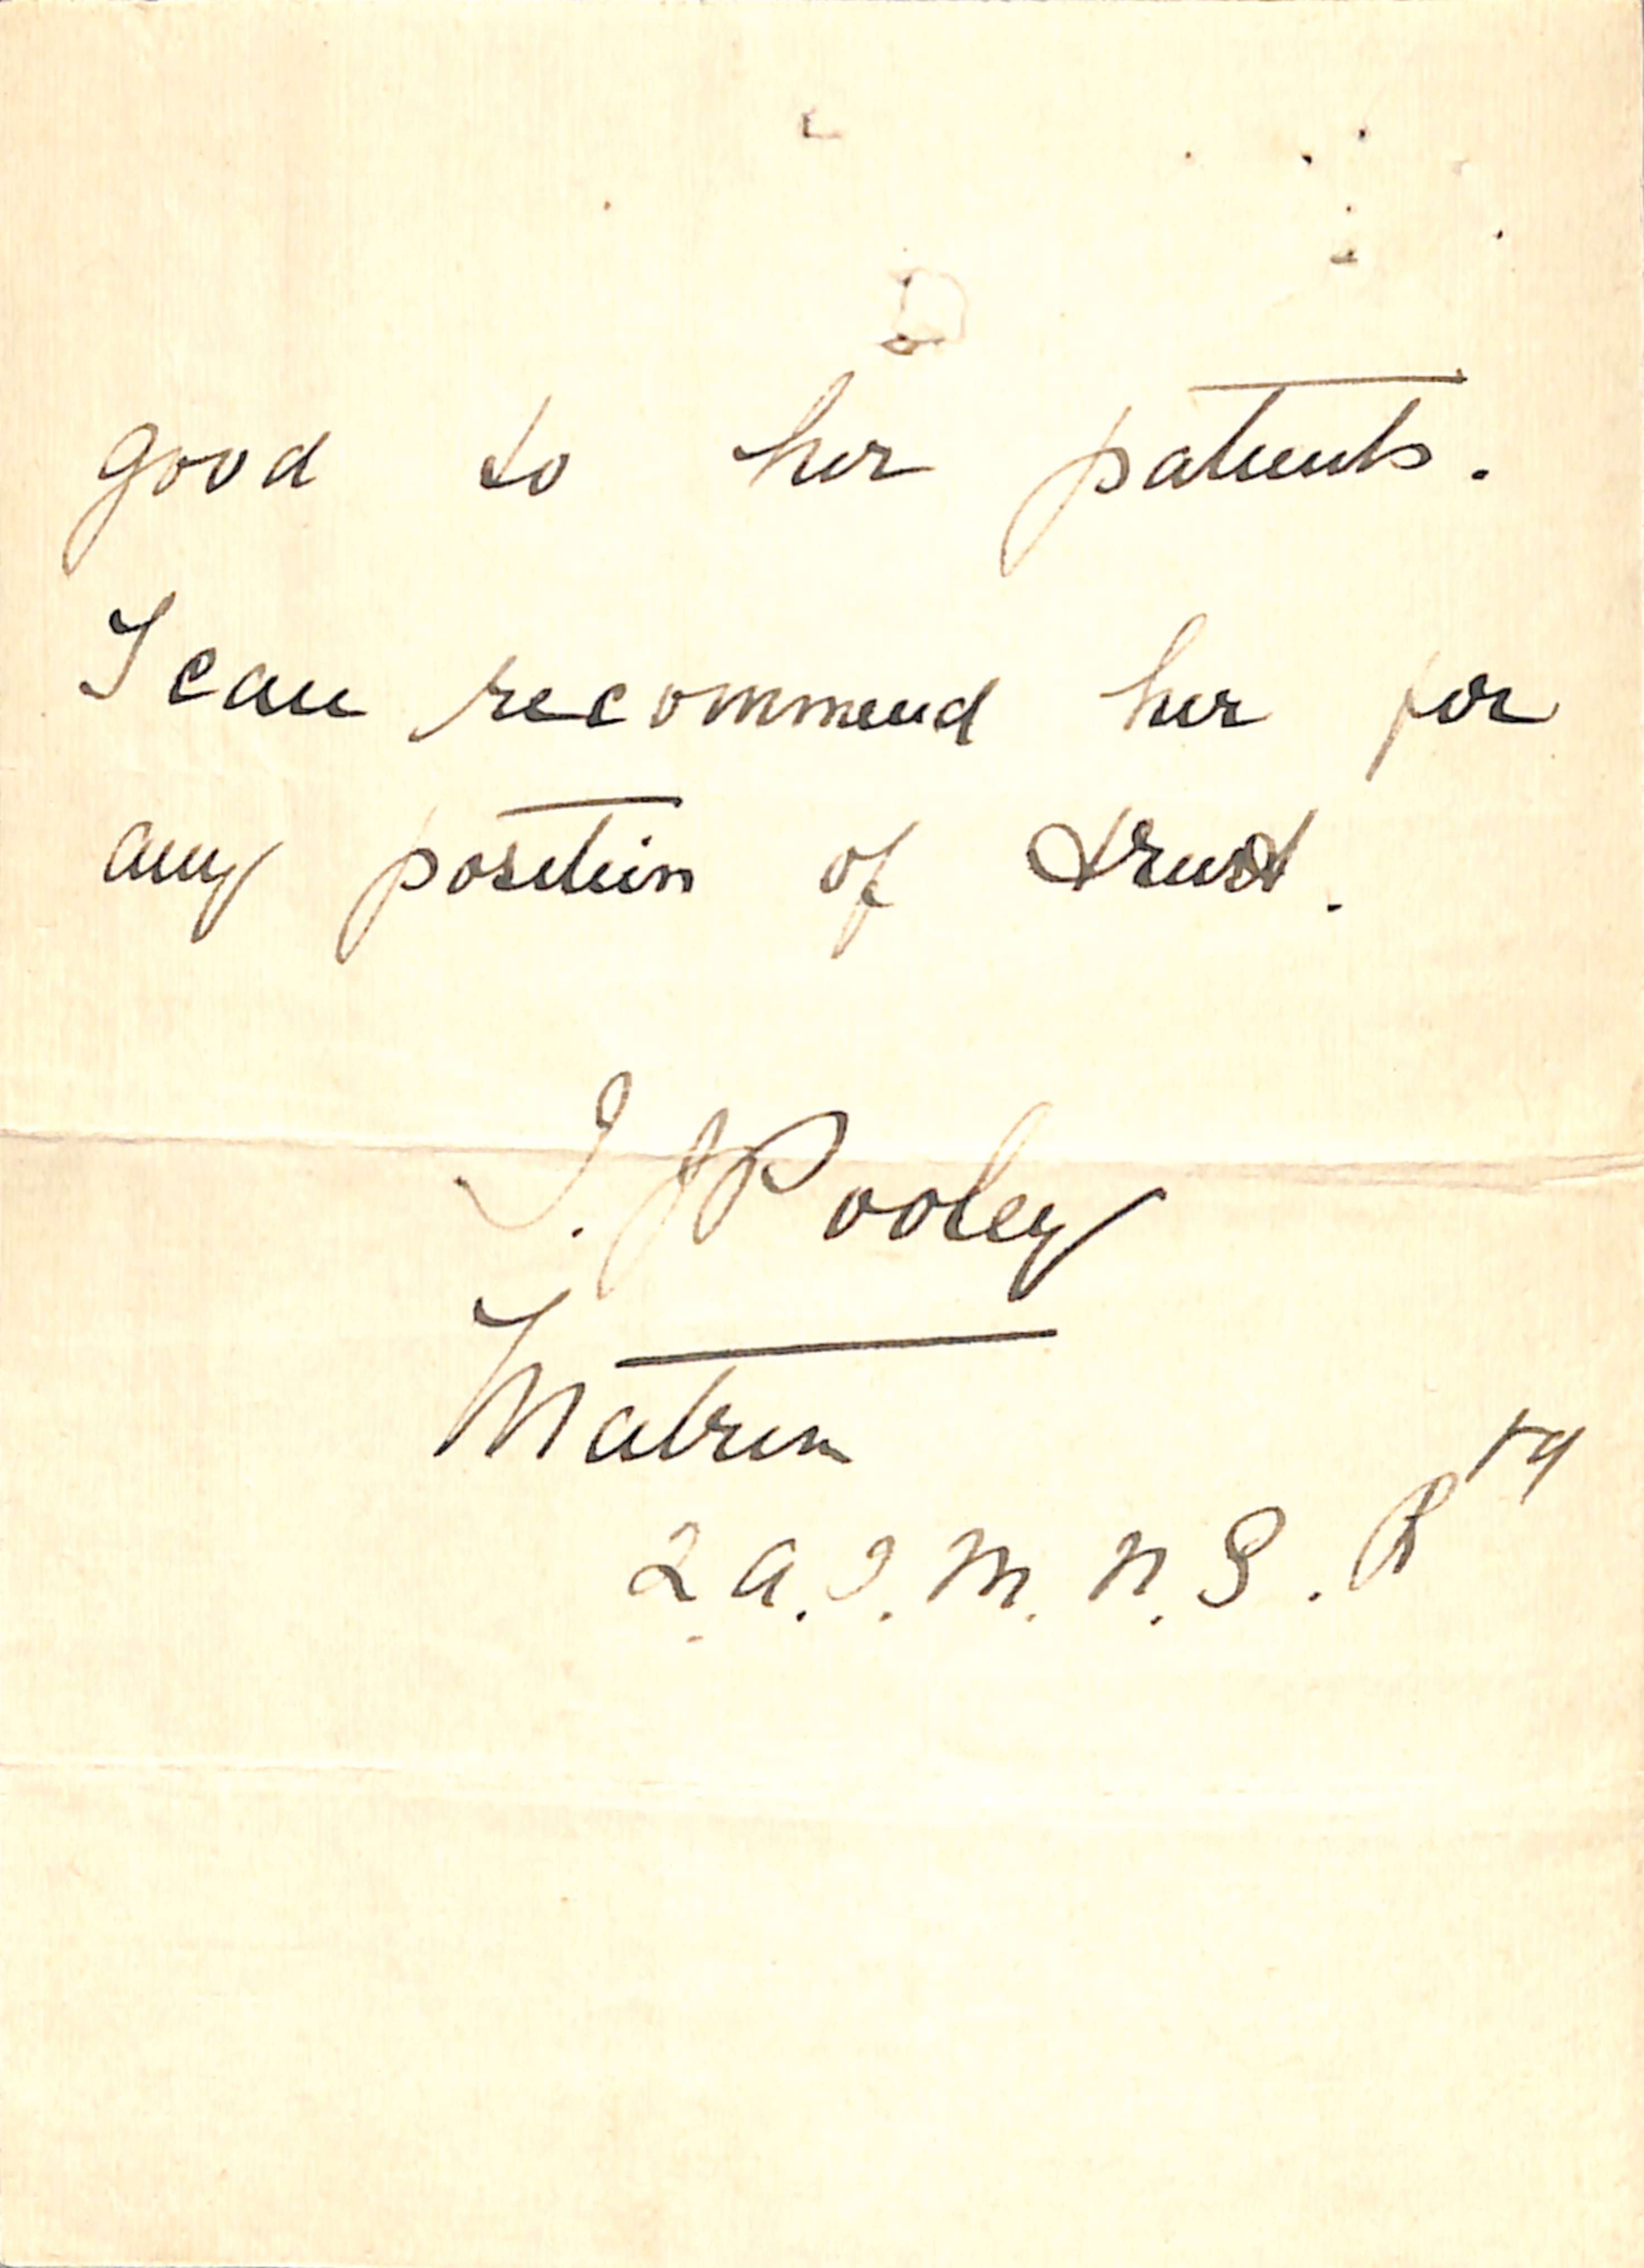 good to her patients.
I can recommend her for
any position of trust.
I. J Pooley
Matron
Q A. I. M. N. S. R